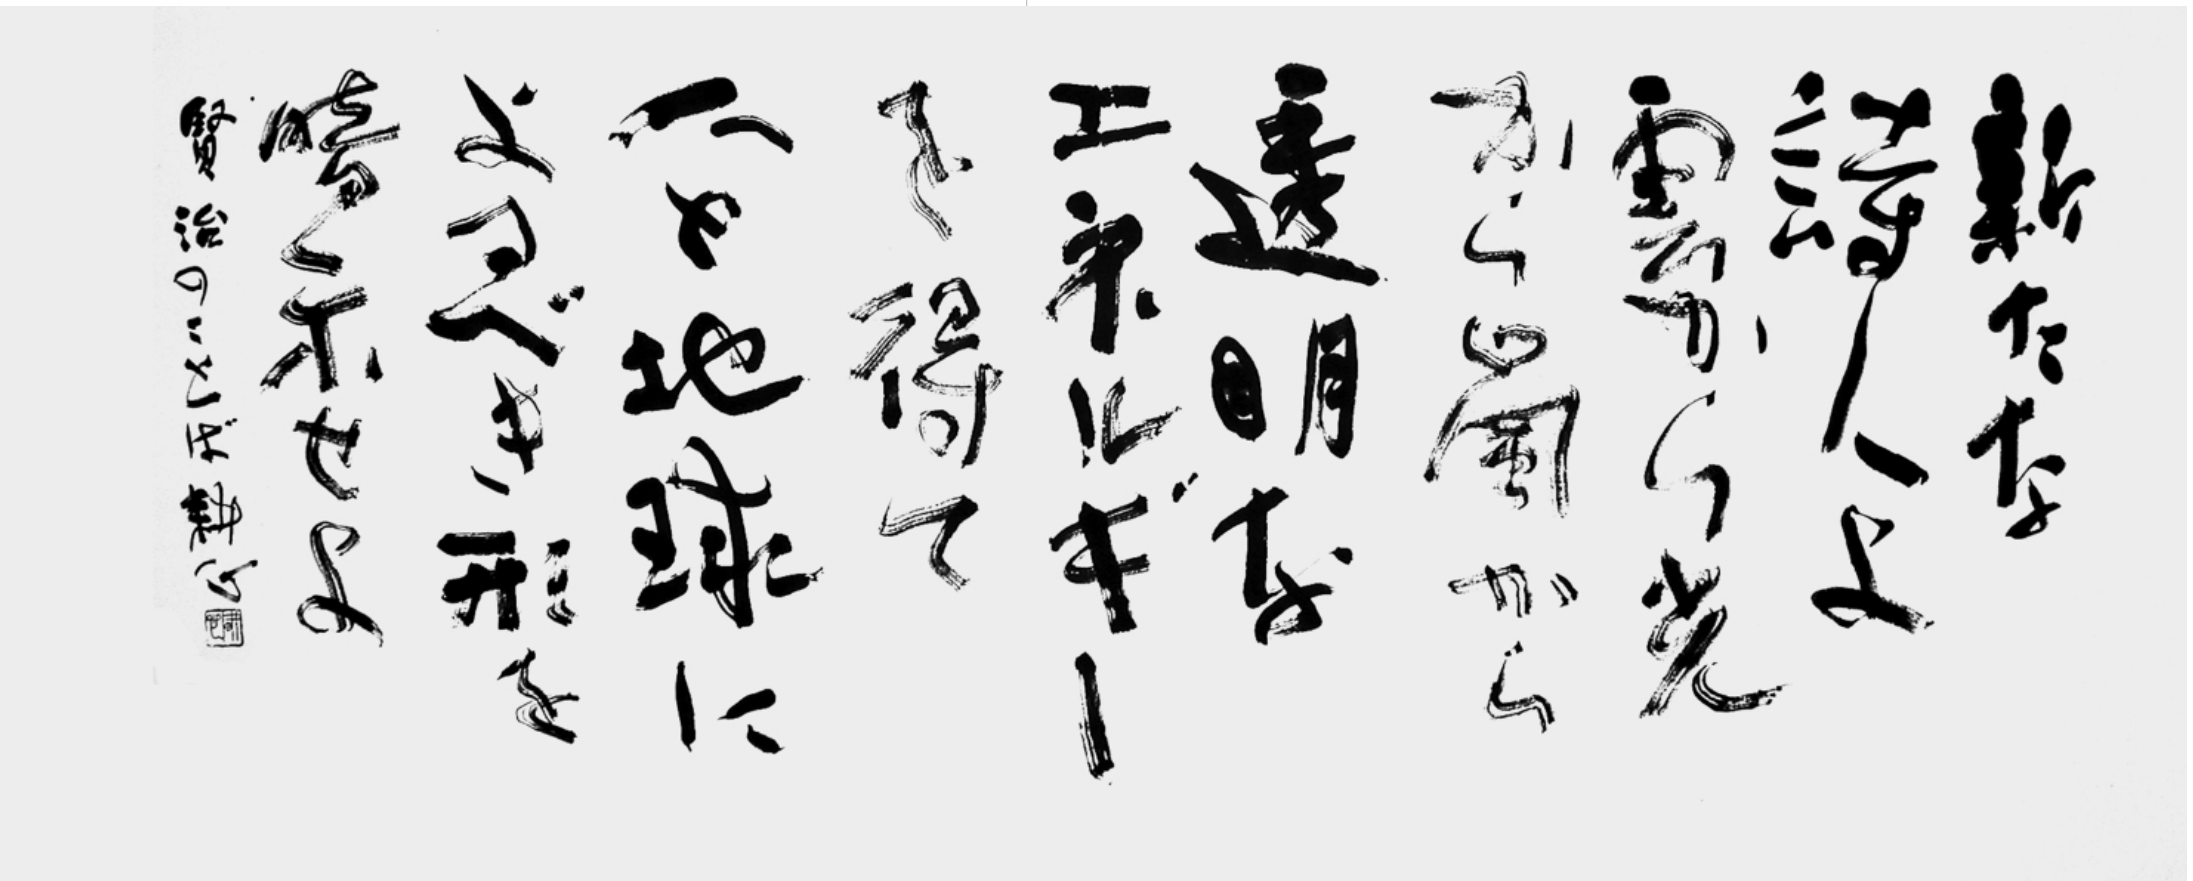 新たな
詩人よ
雲から光
から嵐から
透明な
エネルギー
を得て
人と地球に
とるべき形を
暗示せよ
賢治のことば 耕